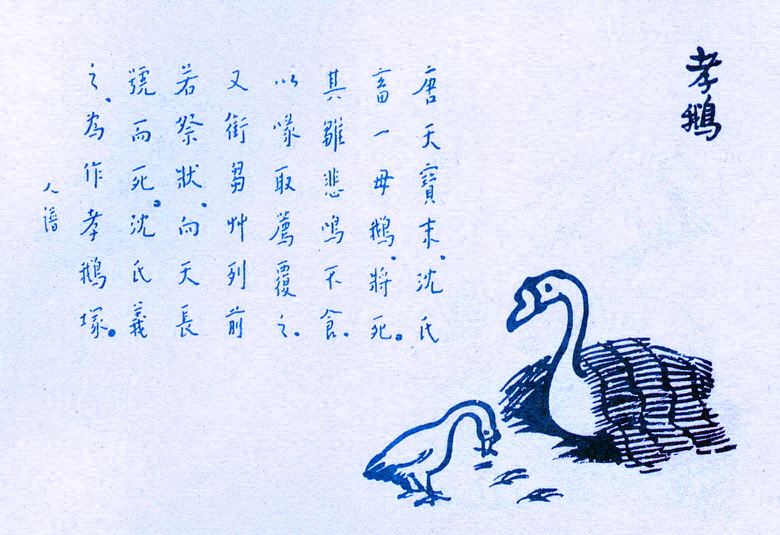 孝鵝
唐天寶末、沈氏
畜一母鵝、將死。
其雛悲鳴不食。
以喙取薦覆之。
又銜芻艸列前
若祭狀、向天長
號而死。沈氏義
之、為作孝鵝塚。
人譜